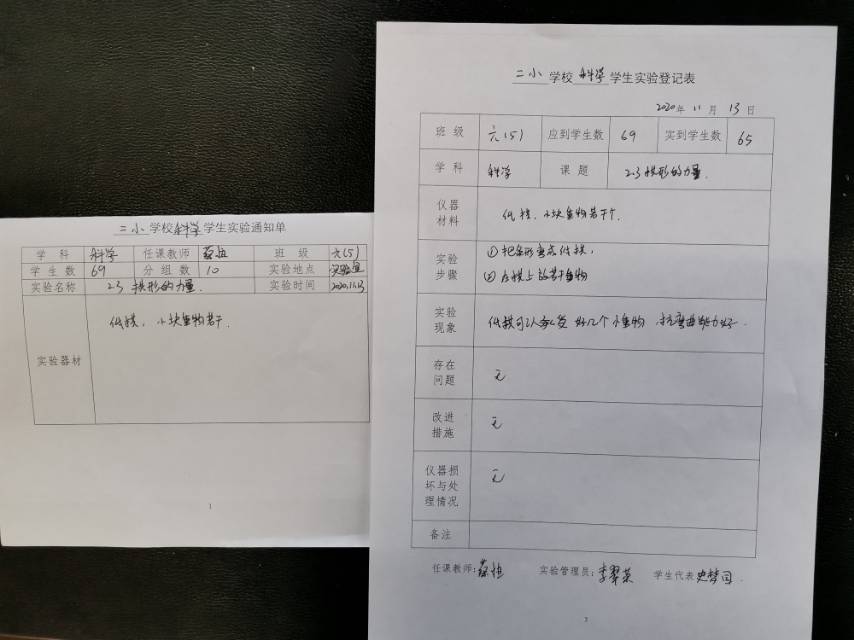 二小学校科学学生实验通知单
学科 科学 任课教师 班级 六(5)
学生数 69 分组数 10 实验地点 实验室
实验名称 2.3 拱形的力量. 实验时间 2020.11.13
实验器材 纸拱, 小块重物若干.
1
二小学校科学学生实验登记表
2020年 11月 13日
班级 六(5) 应到学生数 69 实到学生数 65
学科 科学 课题 2.3 拱形的力量.
仪器材料 纸拱, 小块重物若干个.
实验步骤 ①把条形弯成纸拱,
②在拱上放若干重物
实验现象 纸拱可以承受好几个小重物 抗弯曲能力好.
存在问题 无
改进措施 无
仪器损坏与处理情况 无
备注
任课教师: 实验管理员: 李翠英 学生代表